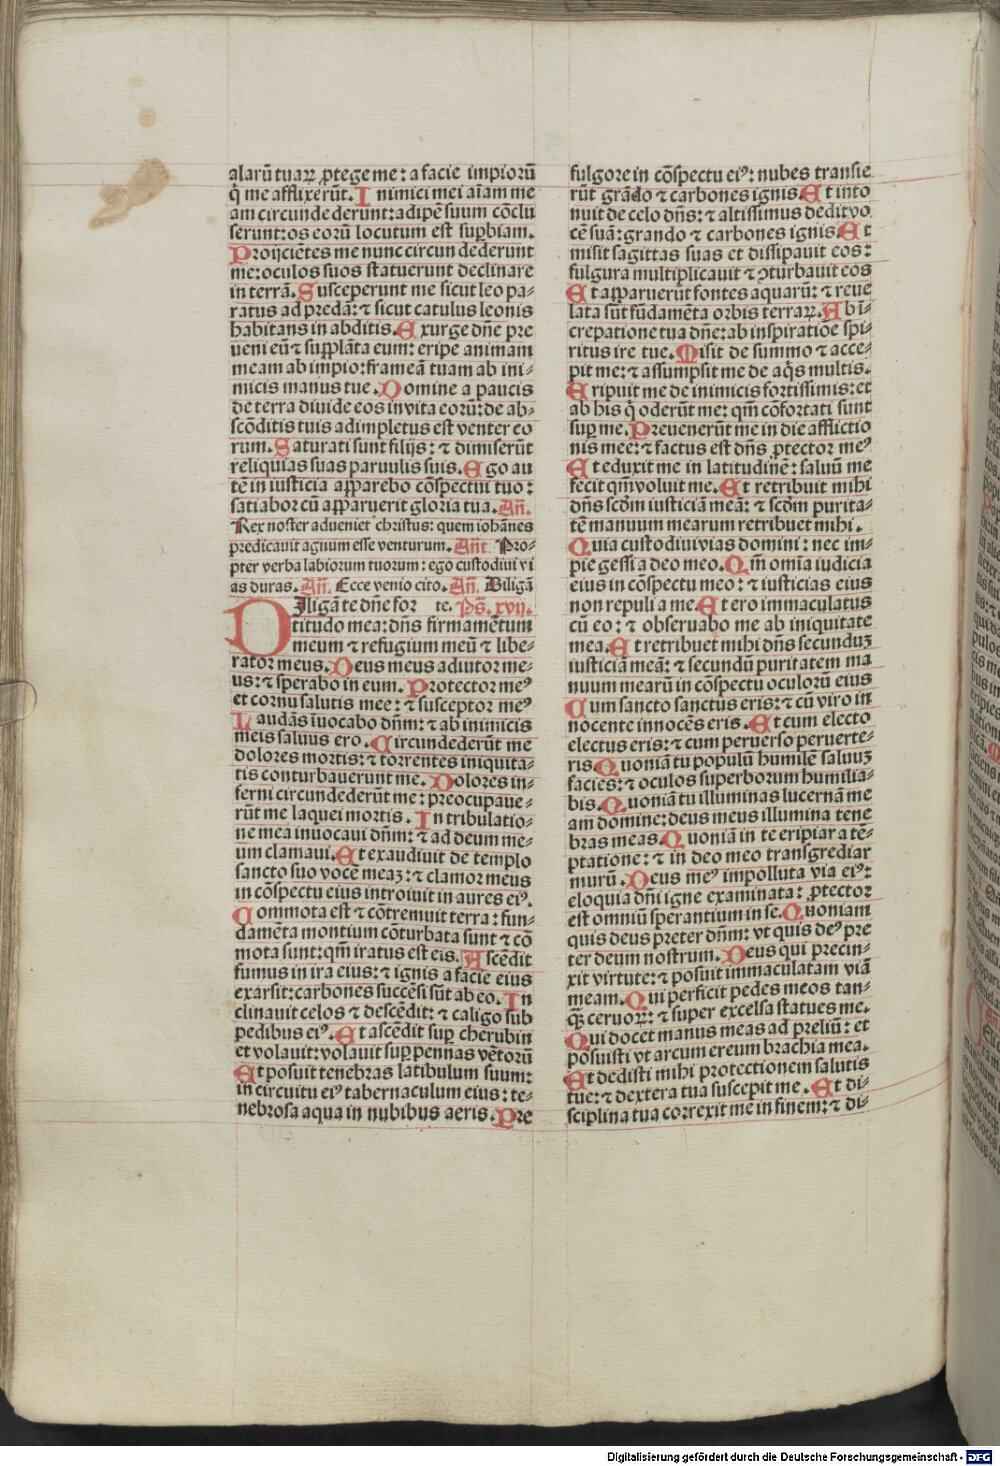 alarū tuaꝝ ꝓtege me: a facie impiorū
q̄ me afflixerūt. Inimici mei aīam me
am circundederunt: adipē suum cōclu
serunt: os eorū locutum est suꝑbiam.
Proijciētes me nunc circundederunt
me: oculos suos statuerunt declinare
in terrā. Susceperunt me sicut leo pa⸗
ratus ad predā: ⁊ sicut catulus leonis
habitans in abditis. Exurge dn̄e pre
ueni eū ⁊ supplāta eum: eripe animam
meam ab impio: frameā tuam ab ini⸗
micis manus tue. Domine a paucis
de terra diuide eos in vita eorū: de ab⸗
scōditis tuis adimpletus est venter eo
rum. Saturati sunt filijs: ⁊ dimiserūt
reliquias suas paruulis suis. Ego au
tē in iusticia apparebo cōspectui tuo:
satiabor cū apparuerit gloria tua. Añ.
Rex noster adueniet christus: quem iohānes
predicauit agnum esse venturum. Añt. Pro⸗
pter verba labiorum tuorum: ego custodiui vi
as duras. Añ. Ecce venio cito. Añ. Diligā
DIligā te dn̄e for te. Ps̄. xvij.
titudo mea: dn̄s firmamētum
meum ⁊ refugium meū ⁊ libe⸗
rator meus. Deus meus adiutor me⸗
us: ⁊ sperabo in eum. Protector meꝰ
et cornu salutis mee: ⁊ susceptor meꝰ
Laudās īuocabo dn̄m: ⁊ ab inimicis
meis saluus ero. Circundederūt me
dolores mortis: ⁊ torrentes iniquita⸗
tis conturbauerunt me. Dolores in⸗
ferni circundederūt me: preocupaue⸗
rūt me laquei mortis. In tribulatio⸗
ne mea inuocaui dn̄m: ⁊ ad deum me⸗
um clamaui. Et exaudiuit de templo
sancto suo vocē meaʒ: ⁊ clamor meus
in cōspectu eius introiuit in aures eiꝰ.
Commota est ⁊ cōtremuit terra: fun⸗
damēta montium cōturbata sunt ⁊ cō
mota sunt: qm̄ iratus est eis. Ascēdit
fumus in ira eius: ⁊ ignis a facie eius
exarsit: carbones succēsi sūt ab eo. In
clinauit celos ⁊ descēdit: ⁊ caligo sub
pedibus eiꝰ. Et ascēdit suꝑ cherubin
et volauit: volauit suꝑ pennas vētorū
Et posuit tenebras latibulum suum:
in circuitu eiꝰ tabernaculum eius: te⸗
nebrosa aqua in nubibus aeris. Pre
fulgore in cōspectu eiꝰ: nubes transie
rūt grādo ⁊ carbones ignis. Et into
nuit de celo dn̄s: ⁊ altissimus dedit vo
cē suā: grando ⁊ carbones ignis. Et
misit sagittas suas et dissipauit eos:
fulgura multiplicauit ⁊ ꝯturbauit eos
Et apparuerūt fontes aquarū: ⁊ reue
lata sūt fūdamēta orbis terraꝝ. Ab ī⸗
crepatione tua dn̄e: ab inspiratiōe spi⸗
ritus ire tue. Misit de summo ⁊ acce⸗
pit me: ⁊ assumpsit me de aq̄s multis.
Eripuit me de inimicis fortissimis: et
ab his q̄ oderūt me: qm̄ cōfortati sunt
suꝑ me. Preuenerūt me in die afflictio
nis mee: ⁊ factus est dn̄s ꝓtector meꝰ
Et eduxit me in latitudinē: saluū me
fecit qm̄ voluit me. Et retribuit mihi
dn̄s scd̄m iusticiā meā: ⁊ scd̄m purita⸗
tē manuum mearum retribuet mihi.
Quia custodiui vias domini: nec im⸗
pie gessi a deo meo. Qm̄ omīa iudicia
eius in cōspectu meo: ⁊ iusticias eius
non repuli a me. Et ero immaculatus
cū eo: ⁊ obseruabo me ab iniquitate
mea. Et retribuet mihi dn̄s secunduʒ
iusticiā meā: ⁊ secundū puritatem ma
nuum mearū in cōspectu oculorū eius
Cum sancto sanctus eris: ⁊ cū viro in
nocente innocēs eris. Et cum electo
electus eris: ⁊ cum peruerso peruerte⸗
ris. Quoniā tu populū humilē saluuʒ
facies: ⁊ oculos superborum humilia⸗
bis. Quoniā tu illuminas lucernā me
am domine: deus meus illumina tene
bras meas. Quoniā in te eripiar a tē⸗
ptatione: ⁊ in deo meo transgrediar
murū. Deus meꝰ impolluta via eiꝰ:
eloquia dn̄i igne examinata: ꝓtector
est omniū sperantium in se. Quoniam
quis deus preter dn̄m: vt quis deꝰ pre
ter deum nostrum. Deus qui precin⸗
xit virtute: ⁊ posuit immaculatam viā
meam. Qui perficit pedes meos tan⸗
qȝ ceruoꝝ: ⁊ super excelsa statues me.
Qui docet manus meas ad preliū: et
posuisti vt arcum ereum brachia mea.
Et dedisti mihi protectionem salutis
tue: ⁊ dextera tua suscepit me. Et di⸗
sciplina tua correxit me in finem: ⁊ di⸗
Digitalisierung gefördert durch die Deutsche Forschungsgemeinschaft - DFG